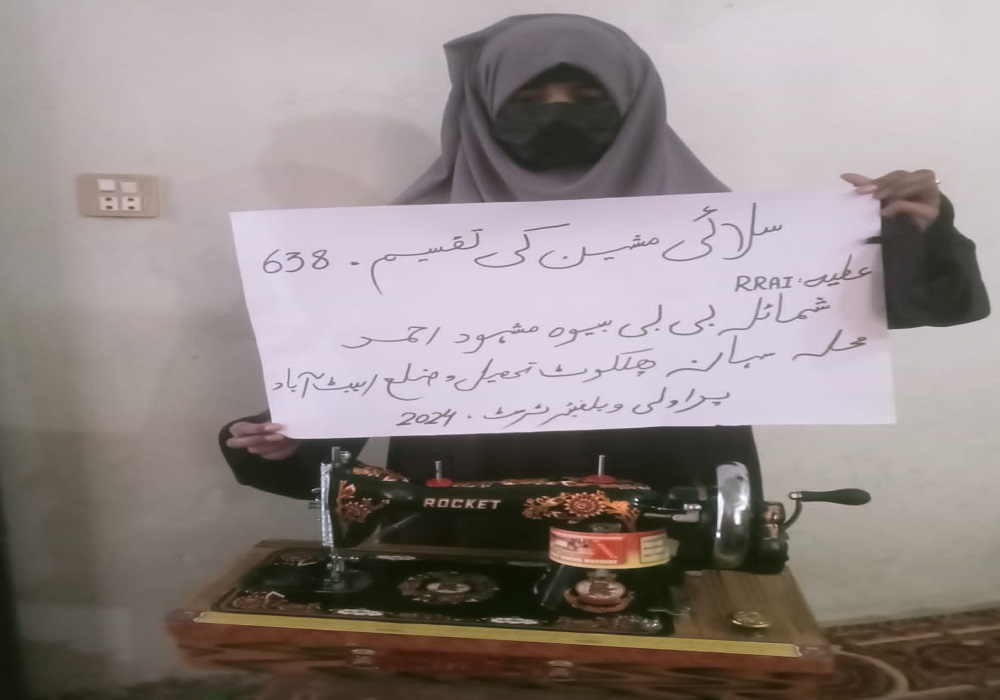 سلائی مشین کی تقسیم . 638
عطیہ: RRAI
شمائلہ بی بی بیوہ مشہود احمد
محلہ چھکوٹ تحصیل و ضلع ایبٹ آباد
ویلفیئر ٹرسٹ . 2024
ROCKET